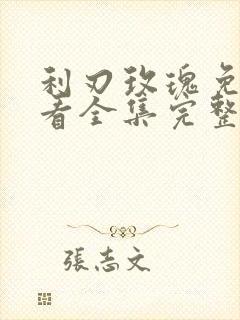 利刃玫瑰免
看全集完整
張志文